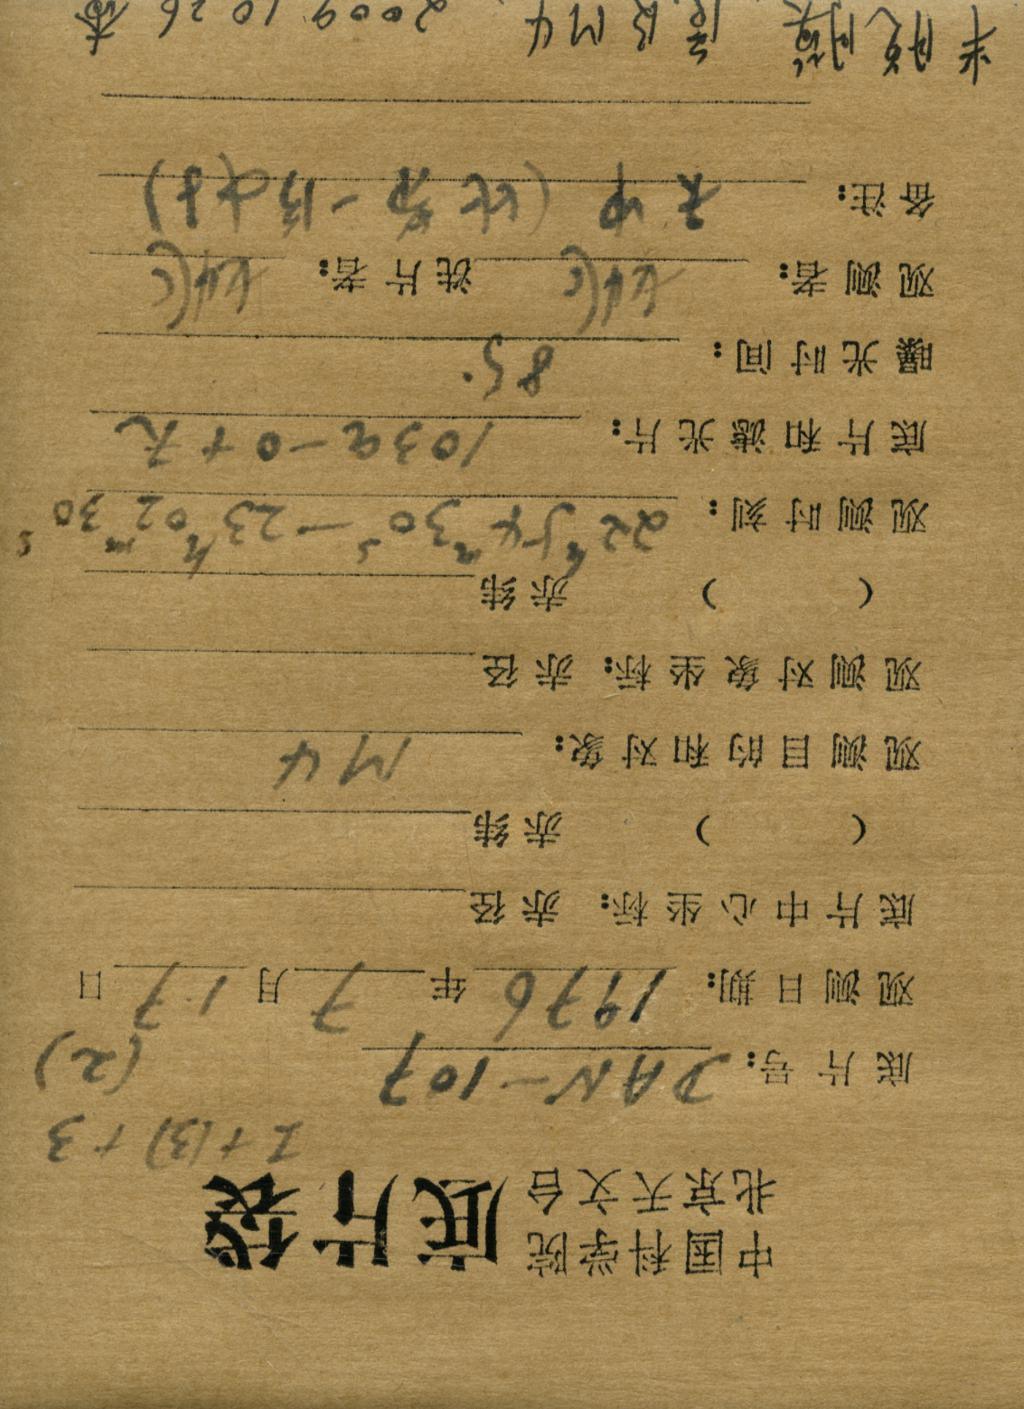 中国科学院
北京天文台 底片袋
I+(3)+3
底片号: DAN-107 (2)
观测日期: 1976年7月17日
底片中心坐标: 赤径
( ) 赤纬
观测目的和对象: M4
观测对象坐标: 赤径
( ) 赤纬
观测时刻: 22h54m30s—23h02m30s
底片和滤光片: 103a-0+无
曝光时间: 8.5
观测者: 洗片者:
备注: (比第一
M4. 2009.10.26